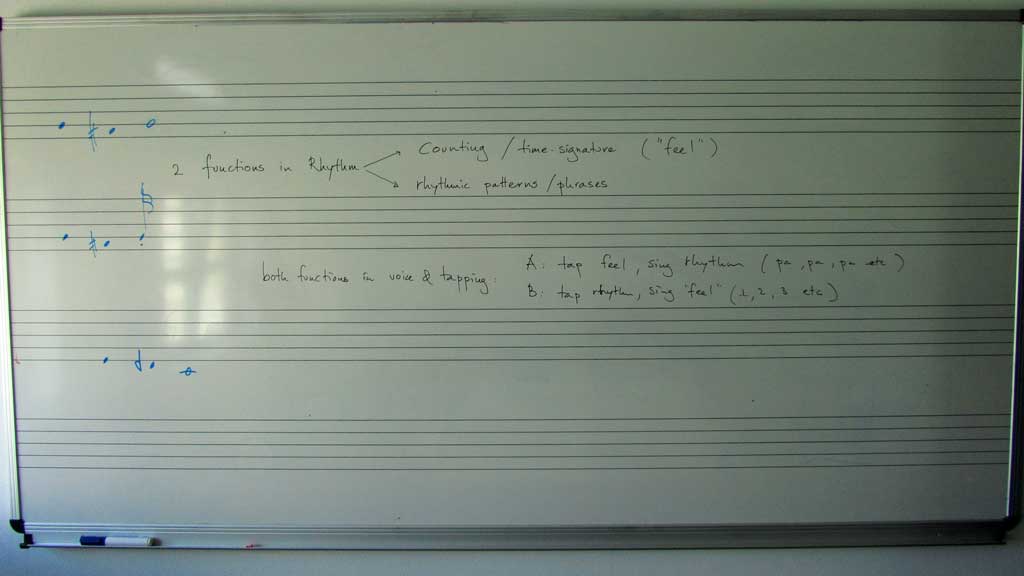 2 functions in Rhythm
Counting / time-signature ("feel")
rhythmic patterns / phrases
both functions in voice & tapping:
A: tap feel, sing rhythm (pa, pa, pa etc)
B: tap rhythm, sing "feel" (1, 2, 3 etc)